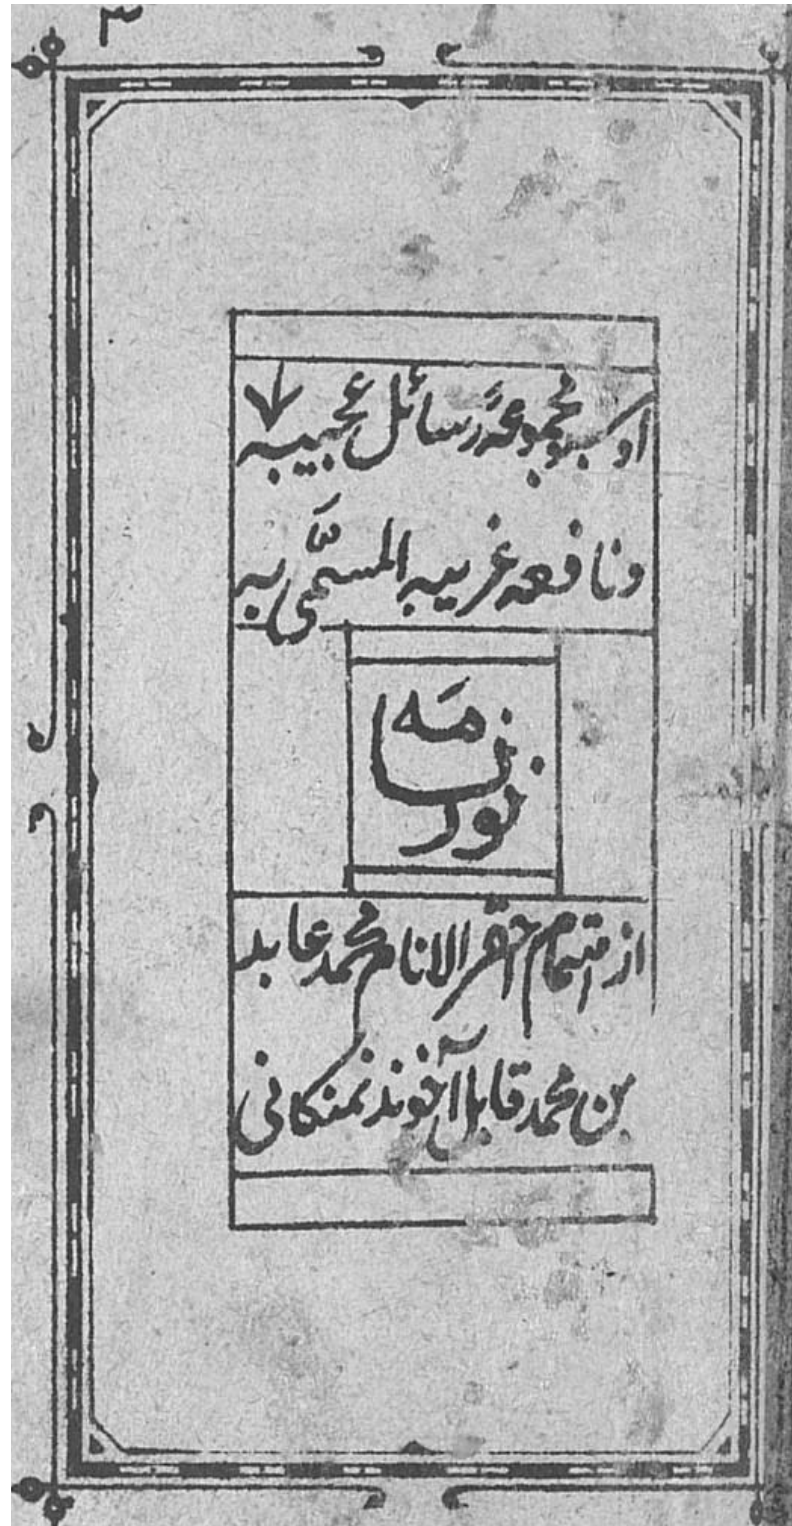 ٣
اوشبو مجموعهٔ رسائل عجیبه
ونافعه غریبه المسمّی به
نورنامه
از اهتمام احقر الانام محمد عابد
بن محمد قابل آخوند نمنکانی